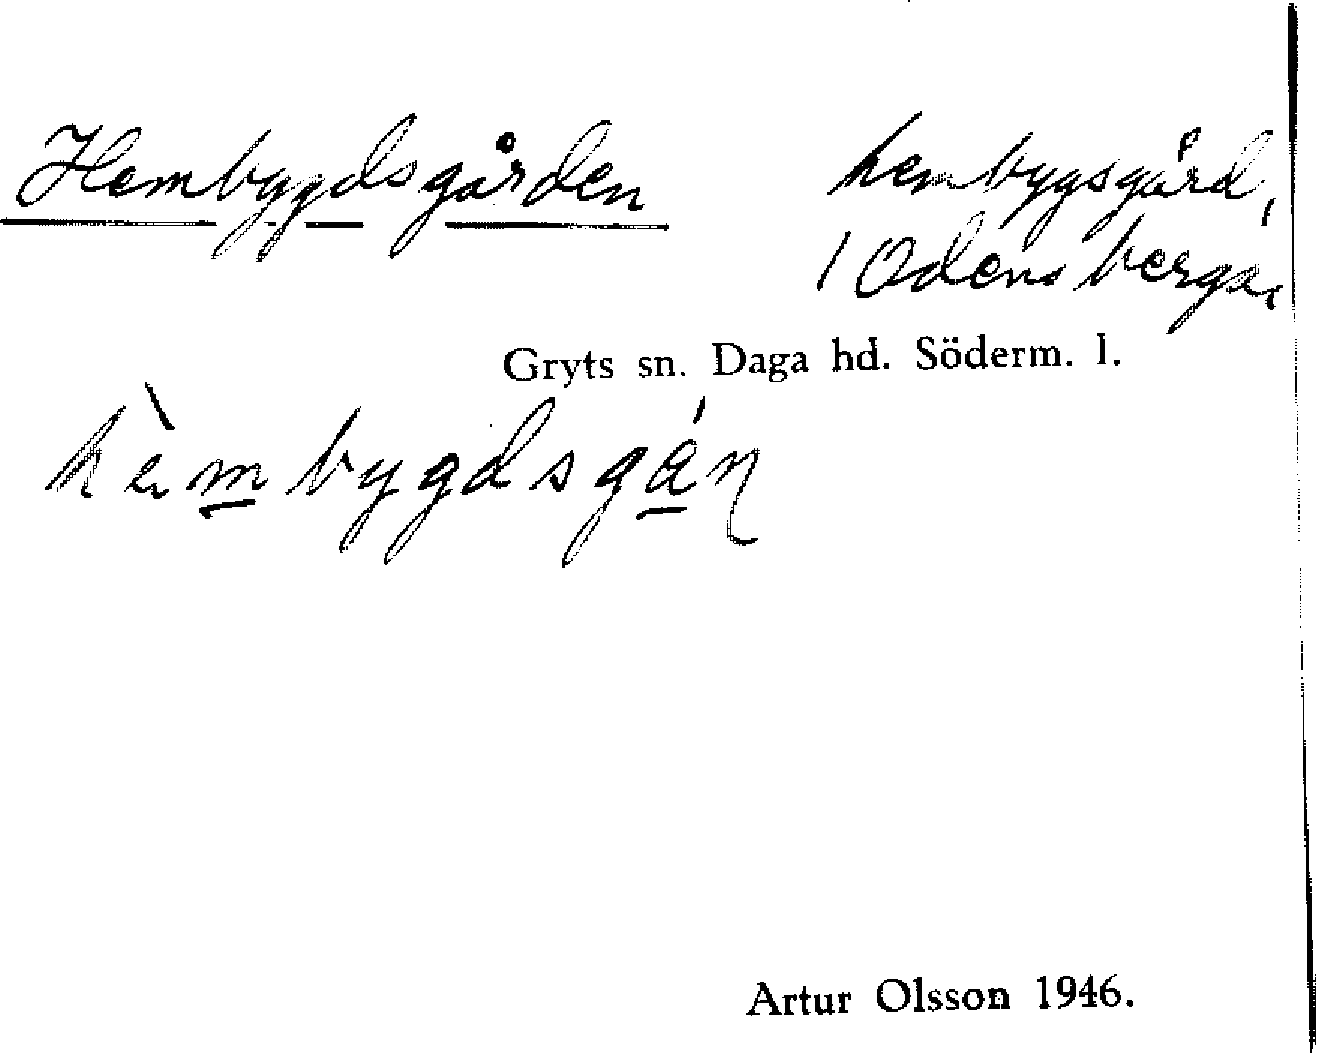 Hembygdsgården hembygsgård,
1 Odensberga,
Gryts sn. Daga hd. Söderm. l.
hèmbygdsgáɳ
Artur Olsson 1946.